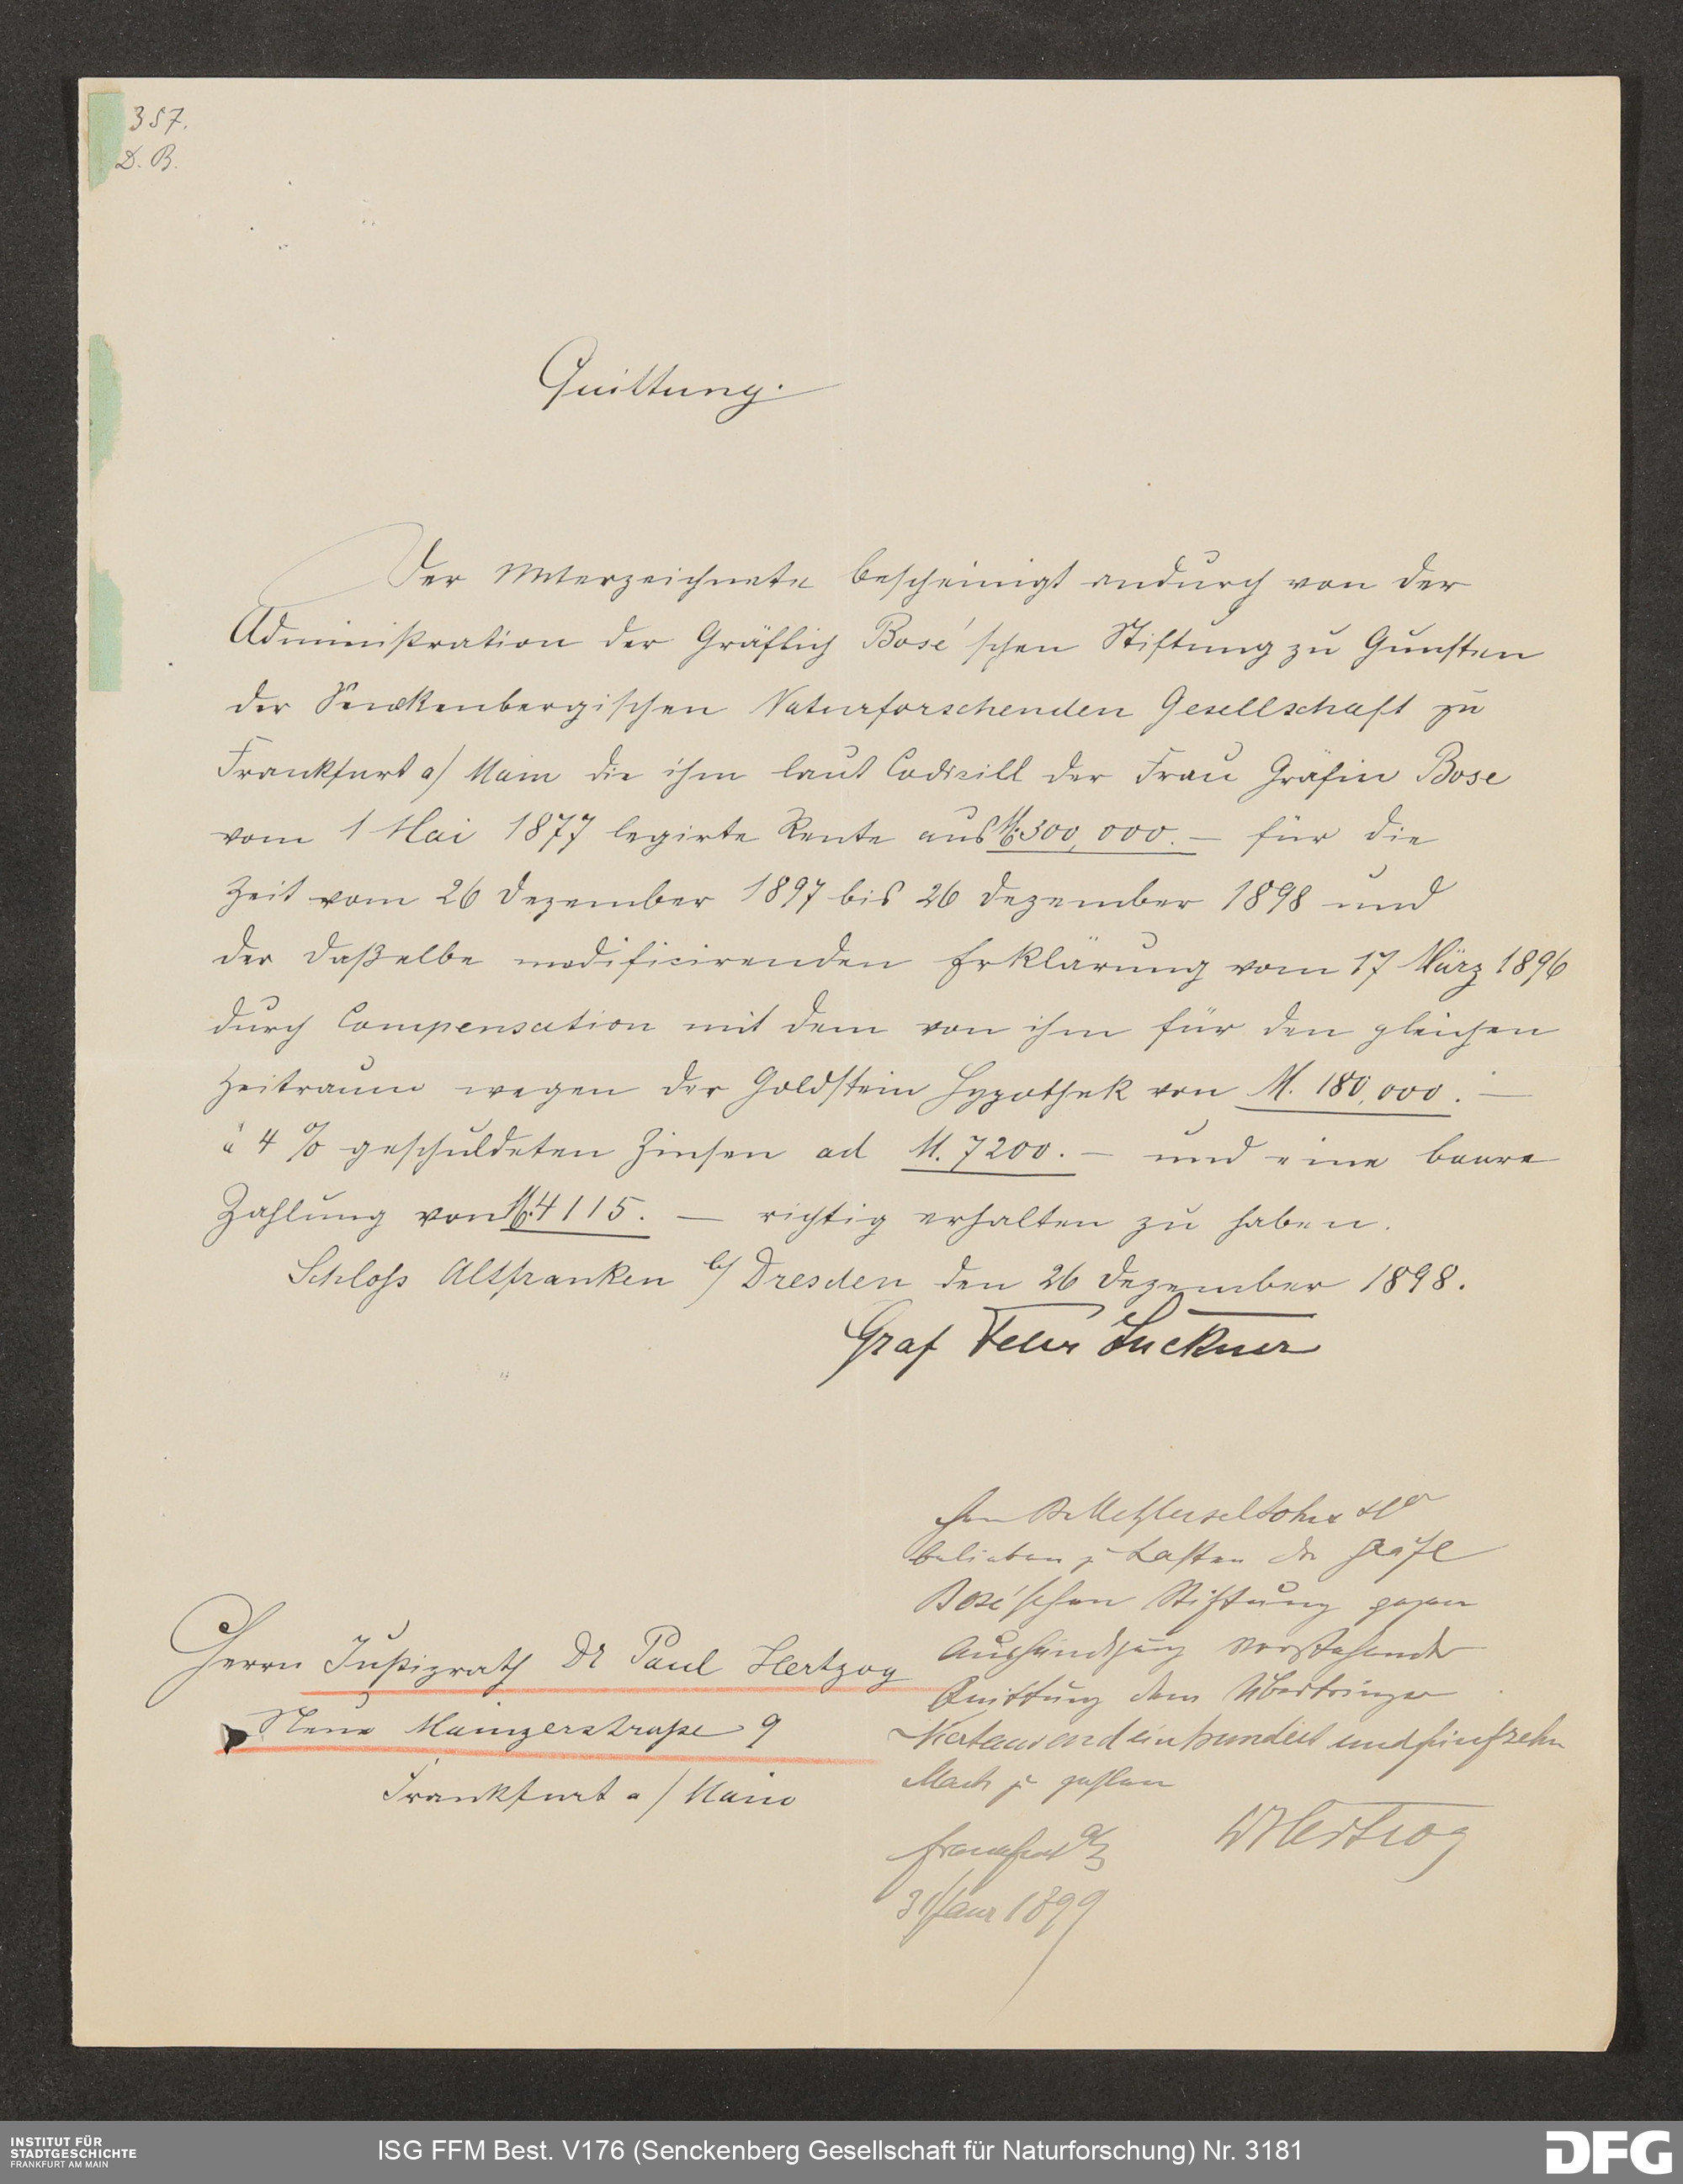 357.
D. B.
Quittung.
Der Unterzeichnete bescheinigt andurch von der
Administration der Gräflich Bose'schen Stiftung zu Gunsten
der Senckenbergischen Naturforschenden Gesellschaft zu
Frankfurt a/ Main die ihm laut Codicill der Frau Gräfin Bose
vom 1 Mai 1877 legirte Rente aus M. 300,000. — für die
Zeit vom 26 Dezember 1897 bis 26 Dezember 1898 und
der daßelbe modificirenden Erklärung vom 17 März 1896
durch Compensation mit dem von ihm für den gleichen
Zeitraum wegen der Goldstein Hypothek von M. 180,000. —
à 4 % geschuldeten Zinsen ad M. 7200. — und eine baare
Zahlung von M. 4115. — richtig erhalten zu haben.
Schloss Altfranken b/ Dresden den 26 Dezember 1898.
Graf Felix Luckner
Herrn Justizrath Dr Paul Hertzog
Neue Mainzerstraße 9
Frankfurt a/ Main
belieben z Lasten der Gräfl
Bose'schen Stiftung gegen
Aushändigung vorstehender
Quittung dem Überbringer
Viertausend einhundert und fünfzehn
Mark z zahlen
Frankfurt a/
31 Janr 1899
Hertzog
INSTITUT FÜR
STADTGESCHICHTE
FRANKFURT AM MAIN
ISG FFM Best. V176 (Senckenberg Gesellschaft für Naturforschung) Nr. 3181
DFG